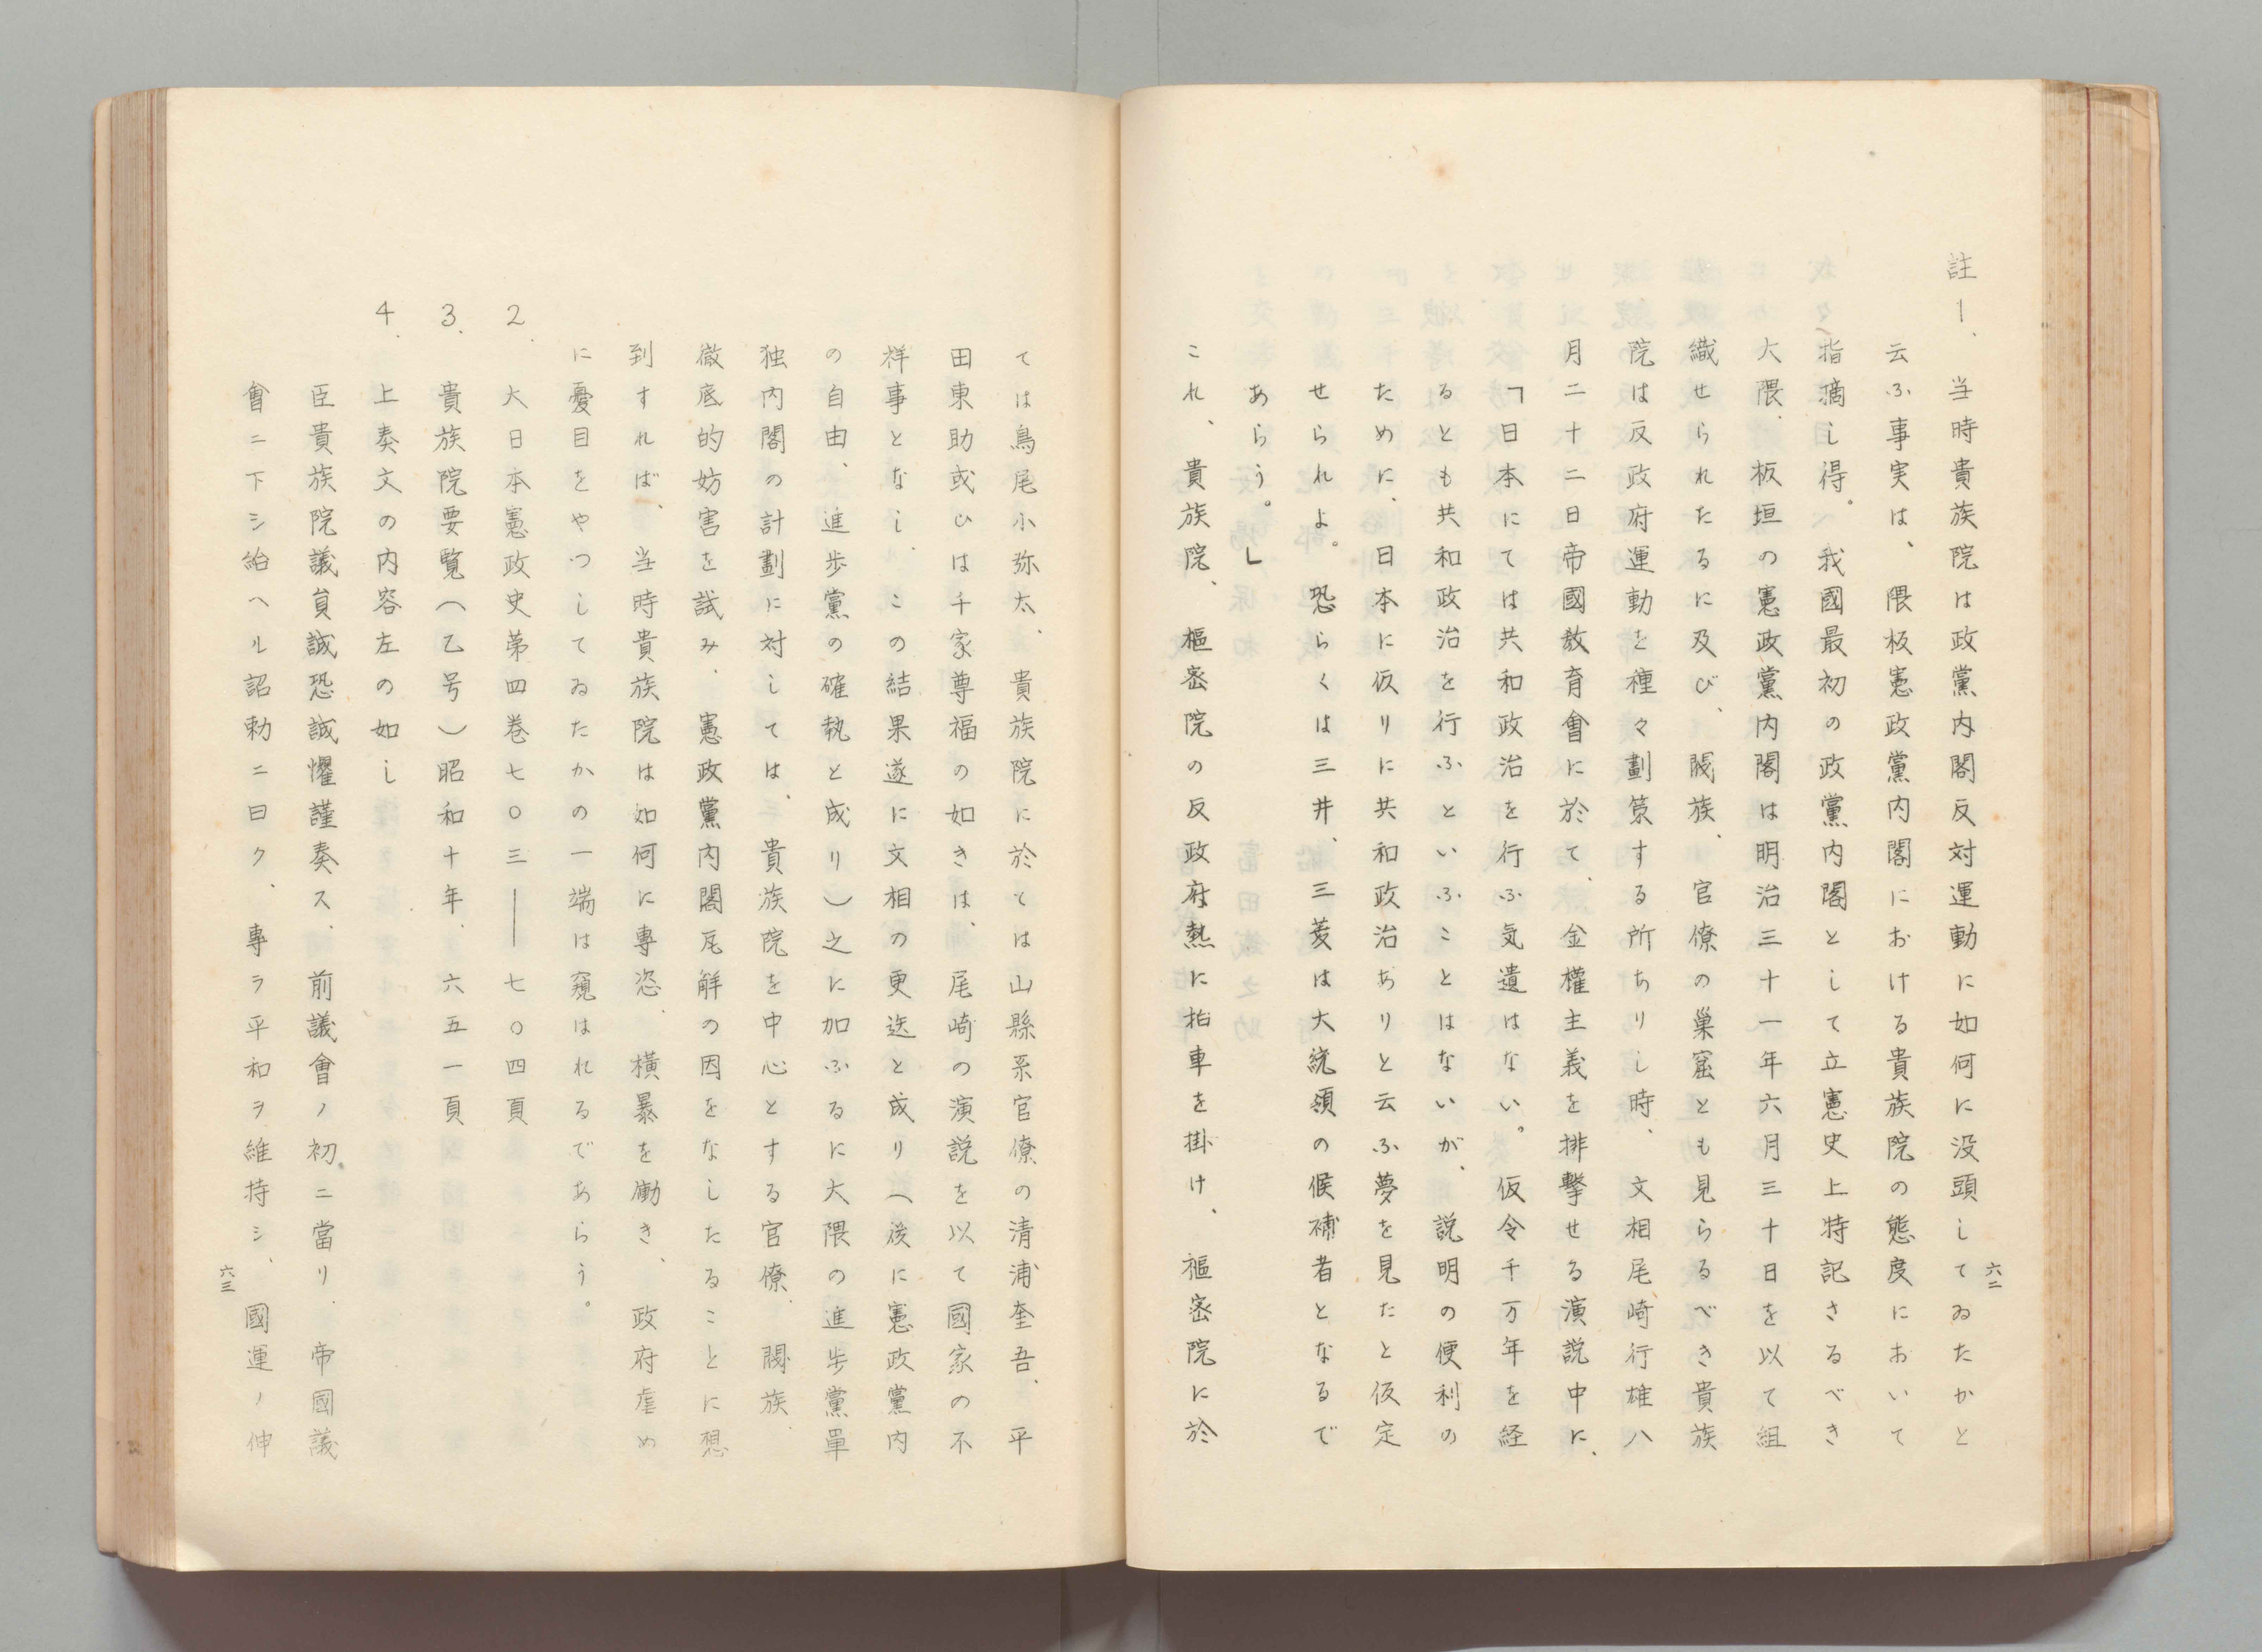 六二
註1、当時貴族院は政黨内閣反対運動に如何に没頭してゐたかと
云ふ事実は、隈板憲政黨内閣における貴族院の態度において
指摘し得。我國最初の政黨内閣として立憲史上特記さるべき
大隈、板垣の憲政黨内閣は明治三十一年六月三十日を以て組
織せられたるに及び、閥族、官僚の巣窟とも見らるべき貴族
院は反政府運動を種々劃策する所ちりし時、文相尾崎行雄八
月二十二日帝國教育會に於て、金權主義を排撃せる演説中に、
「日本にては共和政治を行ふ気遣はない。仮令千万年を経
るとも共和政治を行ふといふことはないが、説明の便利の
ために、日本に仮りに共和政治ありと云ふ夢を見たと仮定
せられよ。恐らくは三井、三菱は大統領の候補者となるで
あらう。」
これ、貴族院、樞密院の反政府熱に拍車を掛け、樞密院に於
ては鳥尾小弥太、貴族院に於ては山縣系官僚の清浦奎吾、平
田東助或ひは千家尊福の如きは、尾崎の演説を以て國家の不
祥事となし、この結果遂に文相の更迭と成り（後に憲政黨内
の自由、進歩黨の確執と成り）之に加ふるに大隈の進歩黨単
独内閣の計劃に対しては、貴族院を中心とする官僚、閥族、
徹底的妨害を試み、憲政黨内閣瓦解の因をなしたることに想
到すれば、当時貴族院は如何に專恣、横暴を働き、政府虐め
に憂目をやつしてゐたかの一端は窺はれるであらう。
2. 大日本憲政史第四巻七〇三——七〇四頁
3. 貴族院要覧（乙号）昭和十年、六五一頁
4. 上奏文の内容左の如し
臣貴族院議員誠恐誠懼謹奏ス、前議會ノ初ニ當リ、帝國議
會ニ下シ給ヘル詔勅ニ曰ク、專ラ平和ヲ維持シ、國運ノ伸
六三